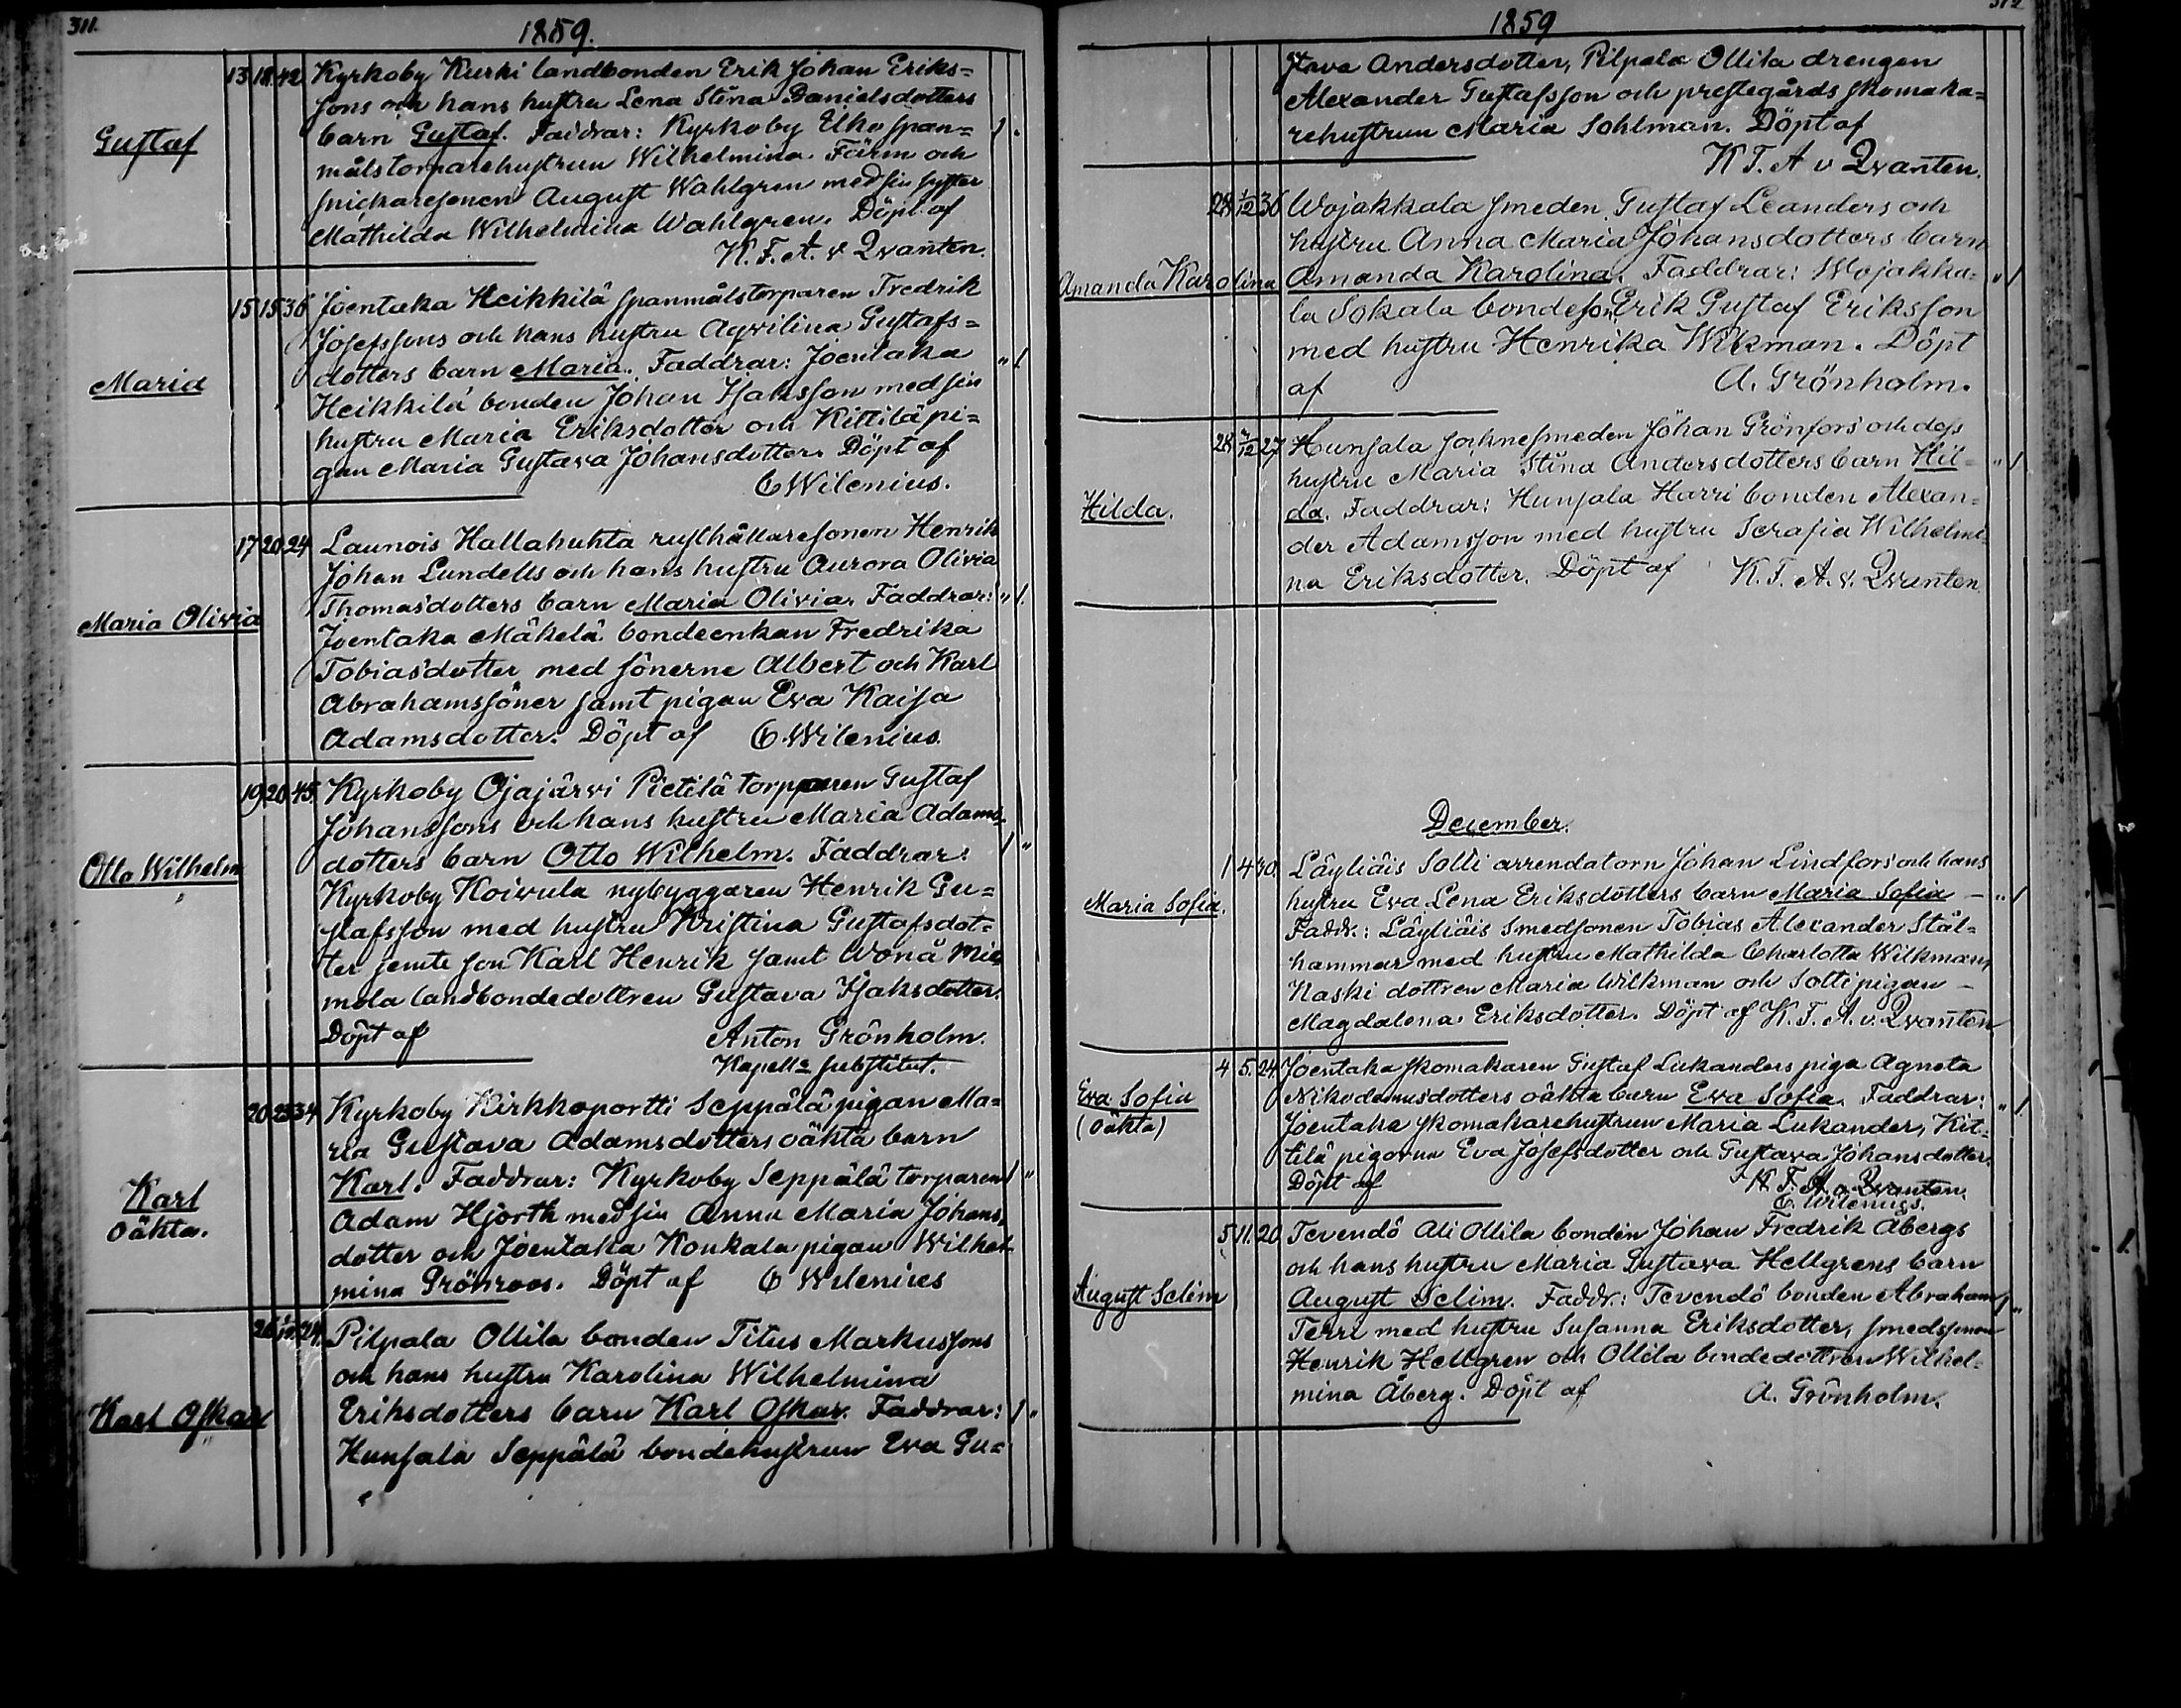 311.
1859.
Gustaf
13 18. 42 Kyrkoby Kurki landbonden Erik Johan Eriks=
sons och hans hustru Lena Stina Danielsdotters
barn Gustaf. Faddrar: Kyrkoby Elko span= 1 .
målstorparehustrun Wilhelmina Färm och
snickaresonen August Wahlgren med sin syster
Mathilda Wilhelmina Wahlgren. Döpt af
K. F. A. v Qvanten.
Maria
15 15 36 Joentaka Heikkilä spanmålstorparen Fredrik
Josefssons och hans hustru Agvilina Gustafs=
dotters barn Maria. Faddrar: Joentaka " 1
Heikkilä bonden Johan Isaksson med sin
hustru Maria Eriksdotter och Kittilä pi=
gan Maria Gustava Johansdotter. Döpt af
C Wilenius.
Maria Olivia
17 20 24 Launois Hallahuhta rusthållaresonen Henrik
Johan Lundells och hans hustru Aurora Olivia
Thomasdotters barn Maria Olivia. Faddrar: " 1.
Joentaka Mäkelä bondeenkan Fredrika
Tobiasdotter med sönerne Albert och Karl
Abrahamssöner samt pigan Eva Kaisa
Adamsdotter. Döpt af C. Wilenius.
Otto Wilhelm
19 20 45. Kyrkoby Ojajärvi Pietilä torpparen Gustaf
Johanssons och hans hustru Maria Adams=
dotters barn Otto Wilhelm. Faddrar: 1 "
Kyrkoby Koivula nybyggaren Henrik Gu=
stafsson med hustru Kristina Gustafsdot=
ter jemte son Karl Henrik samt Wonå Mie=
mola landbondedottren Gustava Isaksdotter.
Döpt af Anton Grönholm.
Kapells substitut.
Karl
oäkta.
20 25 34 Kyrkoby Kirkkoportti Seppälä pigan Ma=
ria Gustava Adamsdotters oäkta barn
Karl. Faddrar: Kyrkoby Seppälä torparen 1 "
Adam Hjorth med sin Anna Maria Johans=
dotter och Joentaka Konkala pigan Wilhel=
mina Grönroos. Döpt af C Wilenius
Karl Oskar
26 1/12 24. Pilpala Ollila bonden Titus Markussons
och hans hustru Karolina Wilhelmina
Eriksdotters barn Karl Oskar. Faddrar: 1 "
Hunsala Seppälä bondehustrun Eva Gu=
312
1859
stava Andersdotter, Pilpala Ollila drengen
Alexander Gustafsson och prestegårds skomaka=
rehustrun Maria Sohlman. Döpt af
K F. A v Qvanten.
Amanda Karolina
28 1/12 36 Wojakkala smeden Gustaf Leanders och
hustru Anna Maria Johansdotters barn
Amanda Karolina. Faddrar: Wojakka= " 1
la Sokala bondeson Erik Gustaf Eriksson
med hustru Henrika Wikman. Döpt
af A. Grönholm.
Hilda.
28 4/12 27 Hunsala socknesmeden Johan Grönfors och dess
hustru Maria Stina Andersdotters barn Hil= " 1
da. Faddrar: Hunsala Harri bonden Alexan=
der Adamsson med hustru Serafia Wilhelmi=
na Eriksdotter. Döpt af K. F. A. v. Qvanten.
December.
Maria Sofia.
1 4 40. Läyliäis Solli arrendatorn Johan Lindfors och hans
hustru Eva Lena Eriksdotters barn Maria Sofia – " 1
Faddr.: Läyliäis Smedsonen Tobias Alexander Stål=
hammar med hustru Mathilda Charlotta Wilkman,
Naski dottren Maria Wilkman och Solli pigan –
Magdalena Eriksdotter. Döpt af K. F. A. v. Qvanten
Eva Sofia
(oäkta)
4 5. 24. Joentaka skomakaren Gustaf Lukanders piga Agneta
Nikodemusdotters oäkta barn Eva Sofia. Faddrar: " 1.
Joentaka skomakarehustrun Maria Lukander, Kit=
tilä pigorna Eva Josefsdotter och Gustava Johansdotter.
Döpt af K F. A. v. Qvanten.
C. Wilenius.
August Selim
5 11. 20 Tevendö Ali Ollila bonden Johan Fredrik Åbergs
och hans hustru Maria Gustava Hellgrens barn
August Selim. Faddr.: Tevendö bonden Abraham 1 "
Terri med hustru Susanna Eriksdotter, smedsonen
Henrik Hellgren och Ollila bondedottren Wilhel=
mina Åberg. Döpt af A. Grönholm.